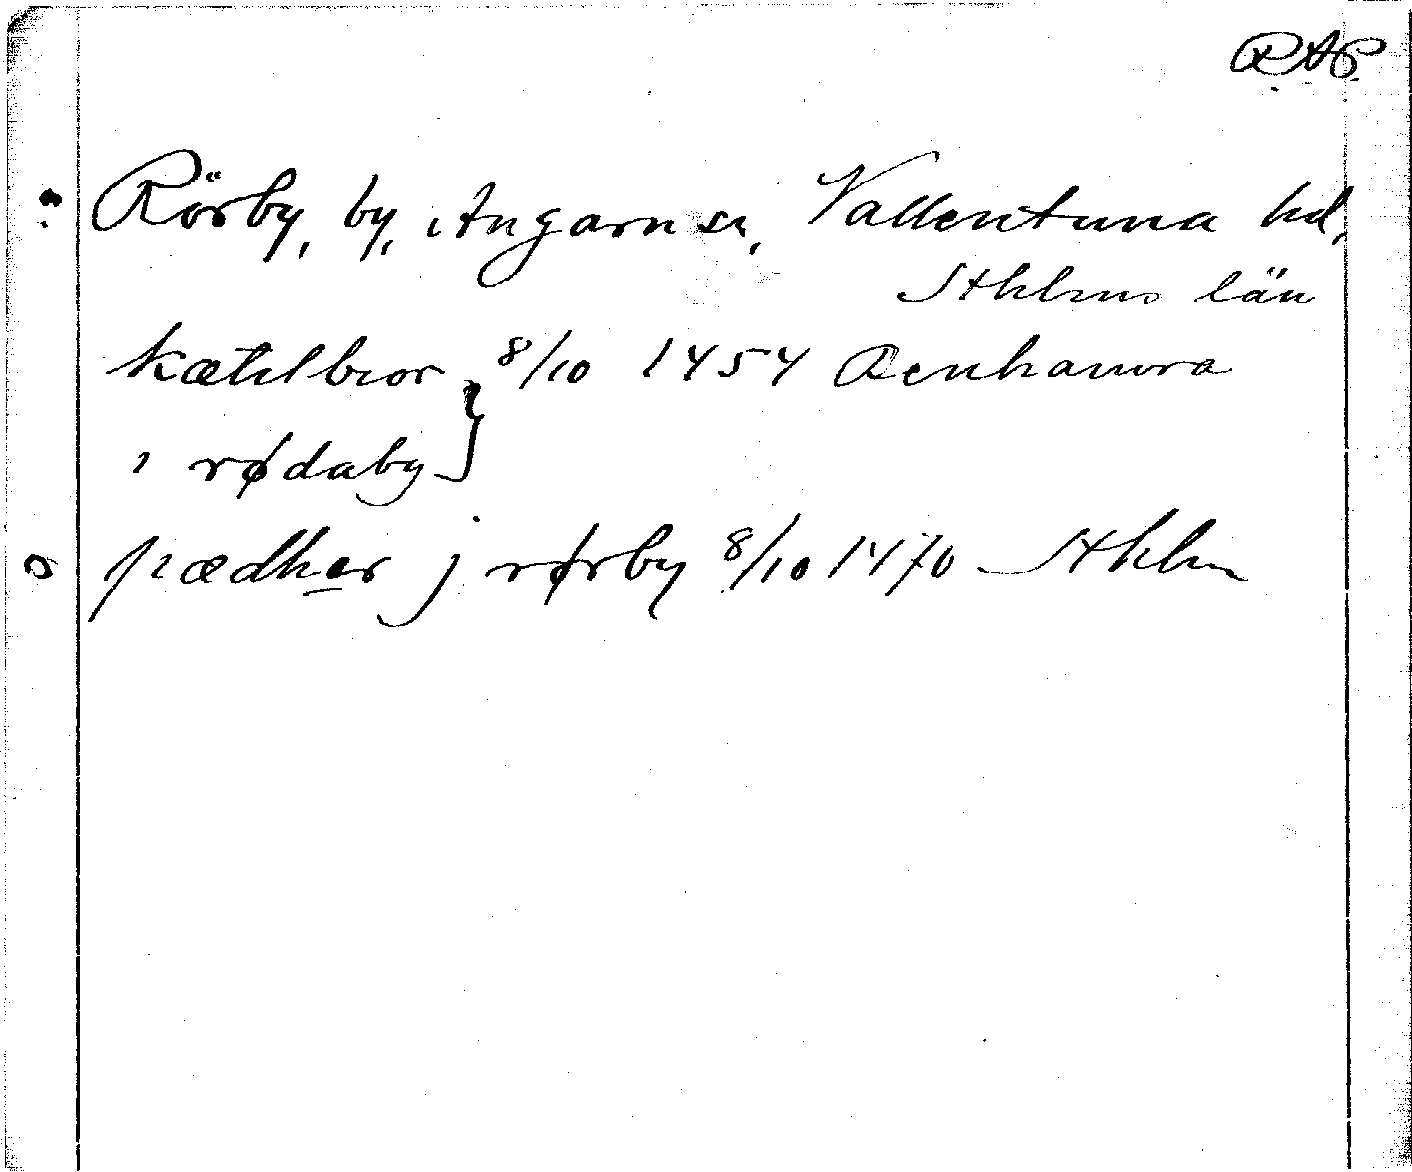 RAP.
Rörby, by, Angarn sn, Vallentuna hd,
Sthlms län
kætilbior } 8/10 1454 Renhamra
i rødaby
pædher j rørby 8/10 1470 Sthlm